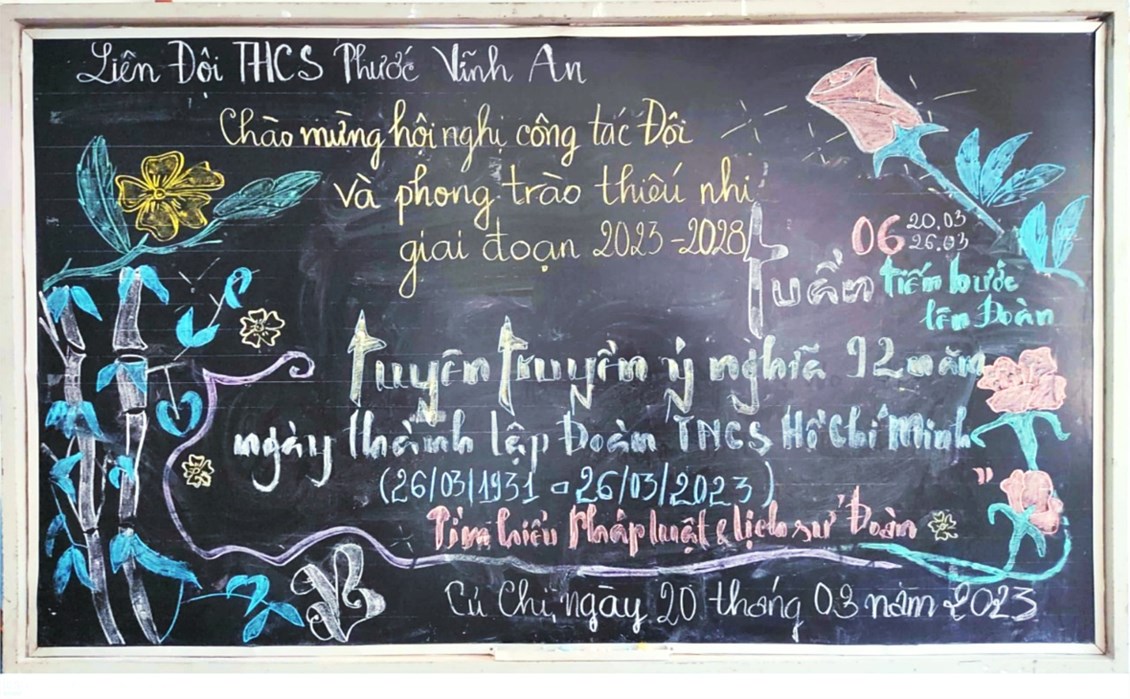 Liên Đội THCS Phước Vĩnh An
Chào mừng hội nghị công tác Đội
và phong trào thiếu nhi
giai đoạn 2023-2028
06 20.03
26.03
Tuần tiến bước
lên Đoàn
Tuyên truyền ý nghĩa 92 năm
ngày thành lập Đoàn TNCS Hồ Chí Minh
(26/03/1931 - 26/03/2023)
"Tìm hiểu Pháp luật & lịch sử Đoàn"
B
Củ Chi, ngày 20 tháng 03 năm 2023